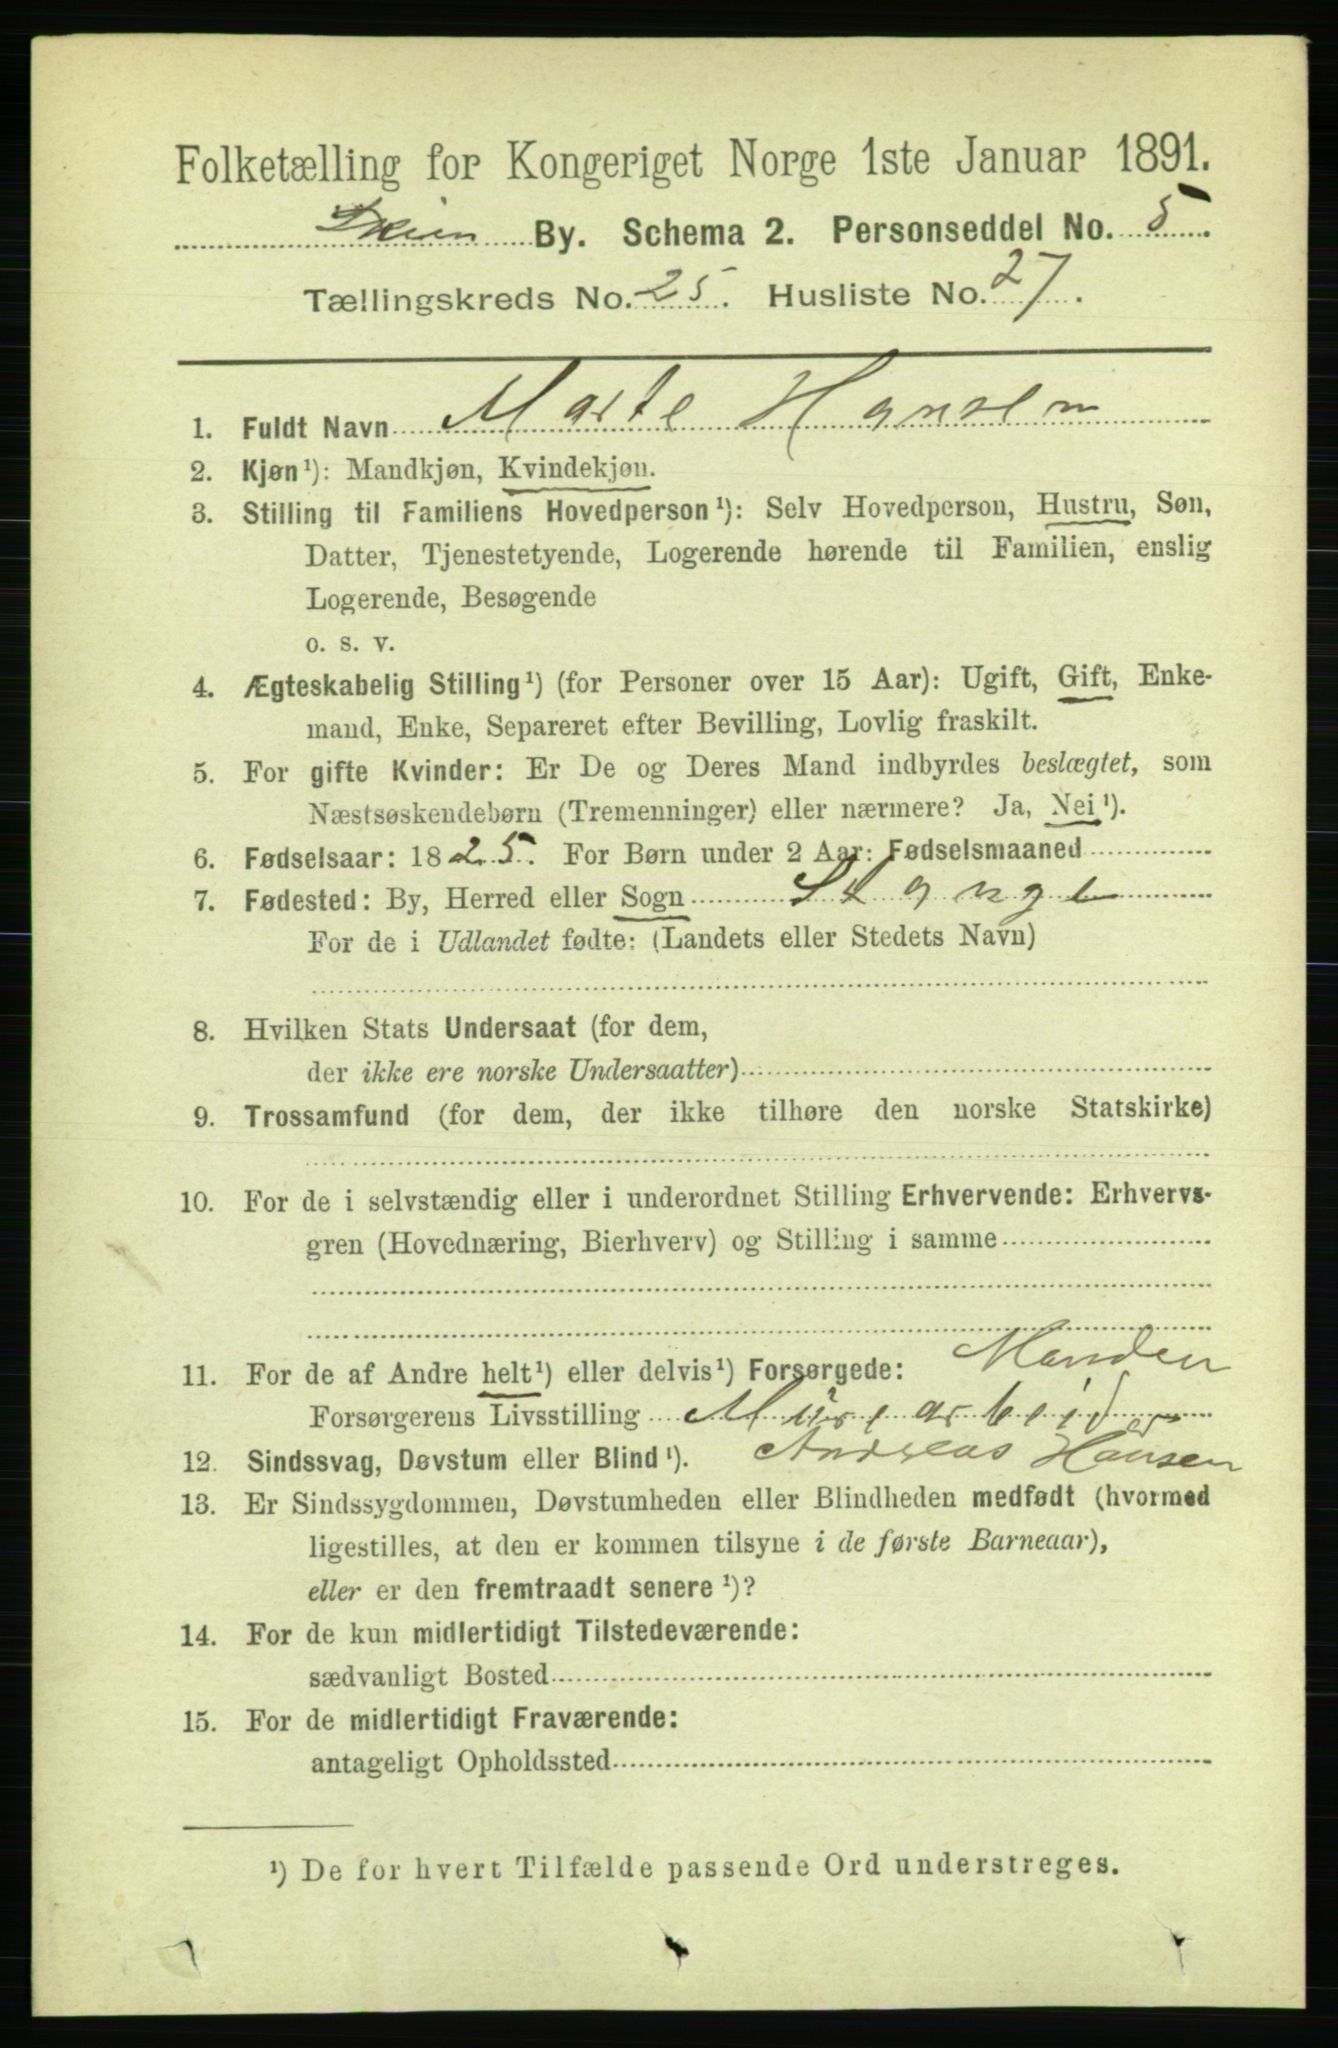 Folketælling for Kongeriget Norge 1ste Januar 1891.
Skien By. Schema 2. Personseddel No. 5
Tællingskreds No. 25. Husliste No. 27.
1. Fuldt Navn Marte Hansen
2. Kjøn¹): Mandkjøn, Kvindekjøn.
3. Stilling til Familiens Hovedperson¹): Selv Hovedperson, Hustru, Søn,
Datter, Tjenestetyende, Logerende hørende til Familien, enslig
Logerende, Besøgende
o. s. v.
4. Ægteskabelig Stilling¹) (for Personer over 15 Aar): Ugift, Gift, Enke-
mand, Enke, Separeret efter Bevilling, Lovlig fraskilt.
5. For gifte Kvinder: Er De og Deres Mand indbyrdes beslægtet, som
Næstsøskendebørn (Tremenninger) eller nærmere? Ja, Nei¹).
6. Fødselsaar: 1825. For Børn under 2 Aar: Fødselsmaaned
7. Fødested: By, Herred eller Sogn Slange
For de i Udlandet fødte: (Landets eller Stedets Navn)
8. Hvilken Stats Undersaat (for dem,
der ikke ere norske Undersaatter)
9. Trossamfund (for dem, der ikke tilhøre den norske Statskirke)
10. For de i selvstændig eller i underordnet Stilling Erhvervende: Erhvervs-
gren (Hovednæring, Bierhverv) og Stilling i samme
11. For de af Andre helt¹) eller delvis¹) Forsørgede: Manden
Forsørgerens Livsstilling Murarbeider
12. Sindssvag, Døvstum eller Blind¹). Andreas Hansen
13. Er Sindssygdommen, Døvstumheden eller Blindheden medfødt (hvormed
ligestilles, at den er kommen tilsyne i de første Barneaar),
eller er den fremtraadt senere¹)?
14. For de kun midlertidigt Tilstedeværende:
sædvanligt Bosted
15. For de midlertidigt Fraværende:
antageligt Opholdssted
¹) De for hvert Tilfælde passende Ord understreges.